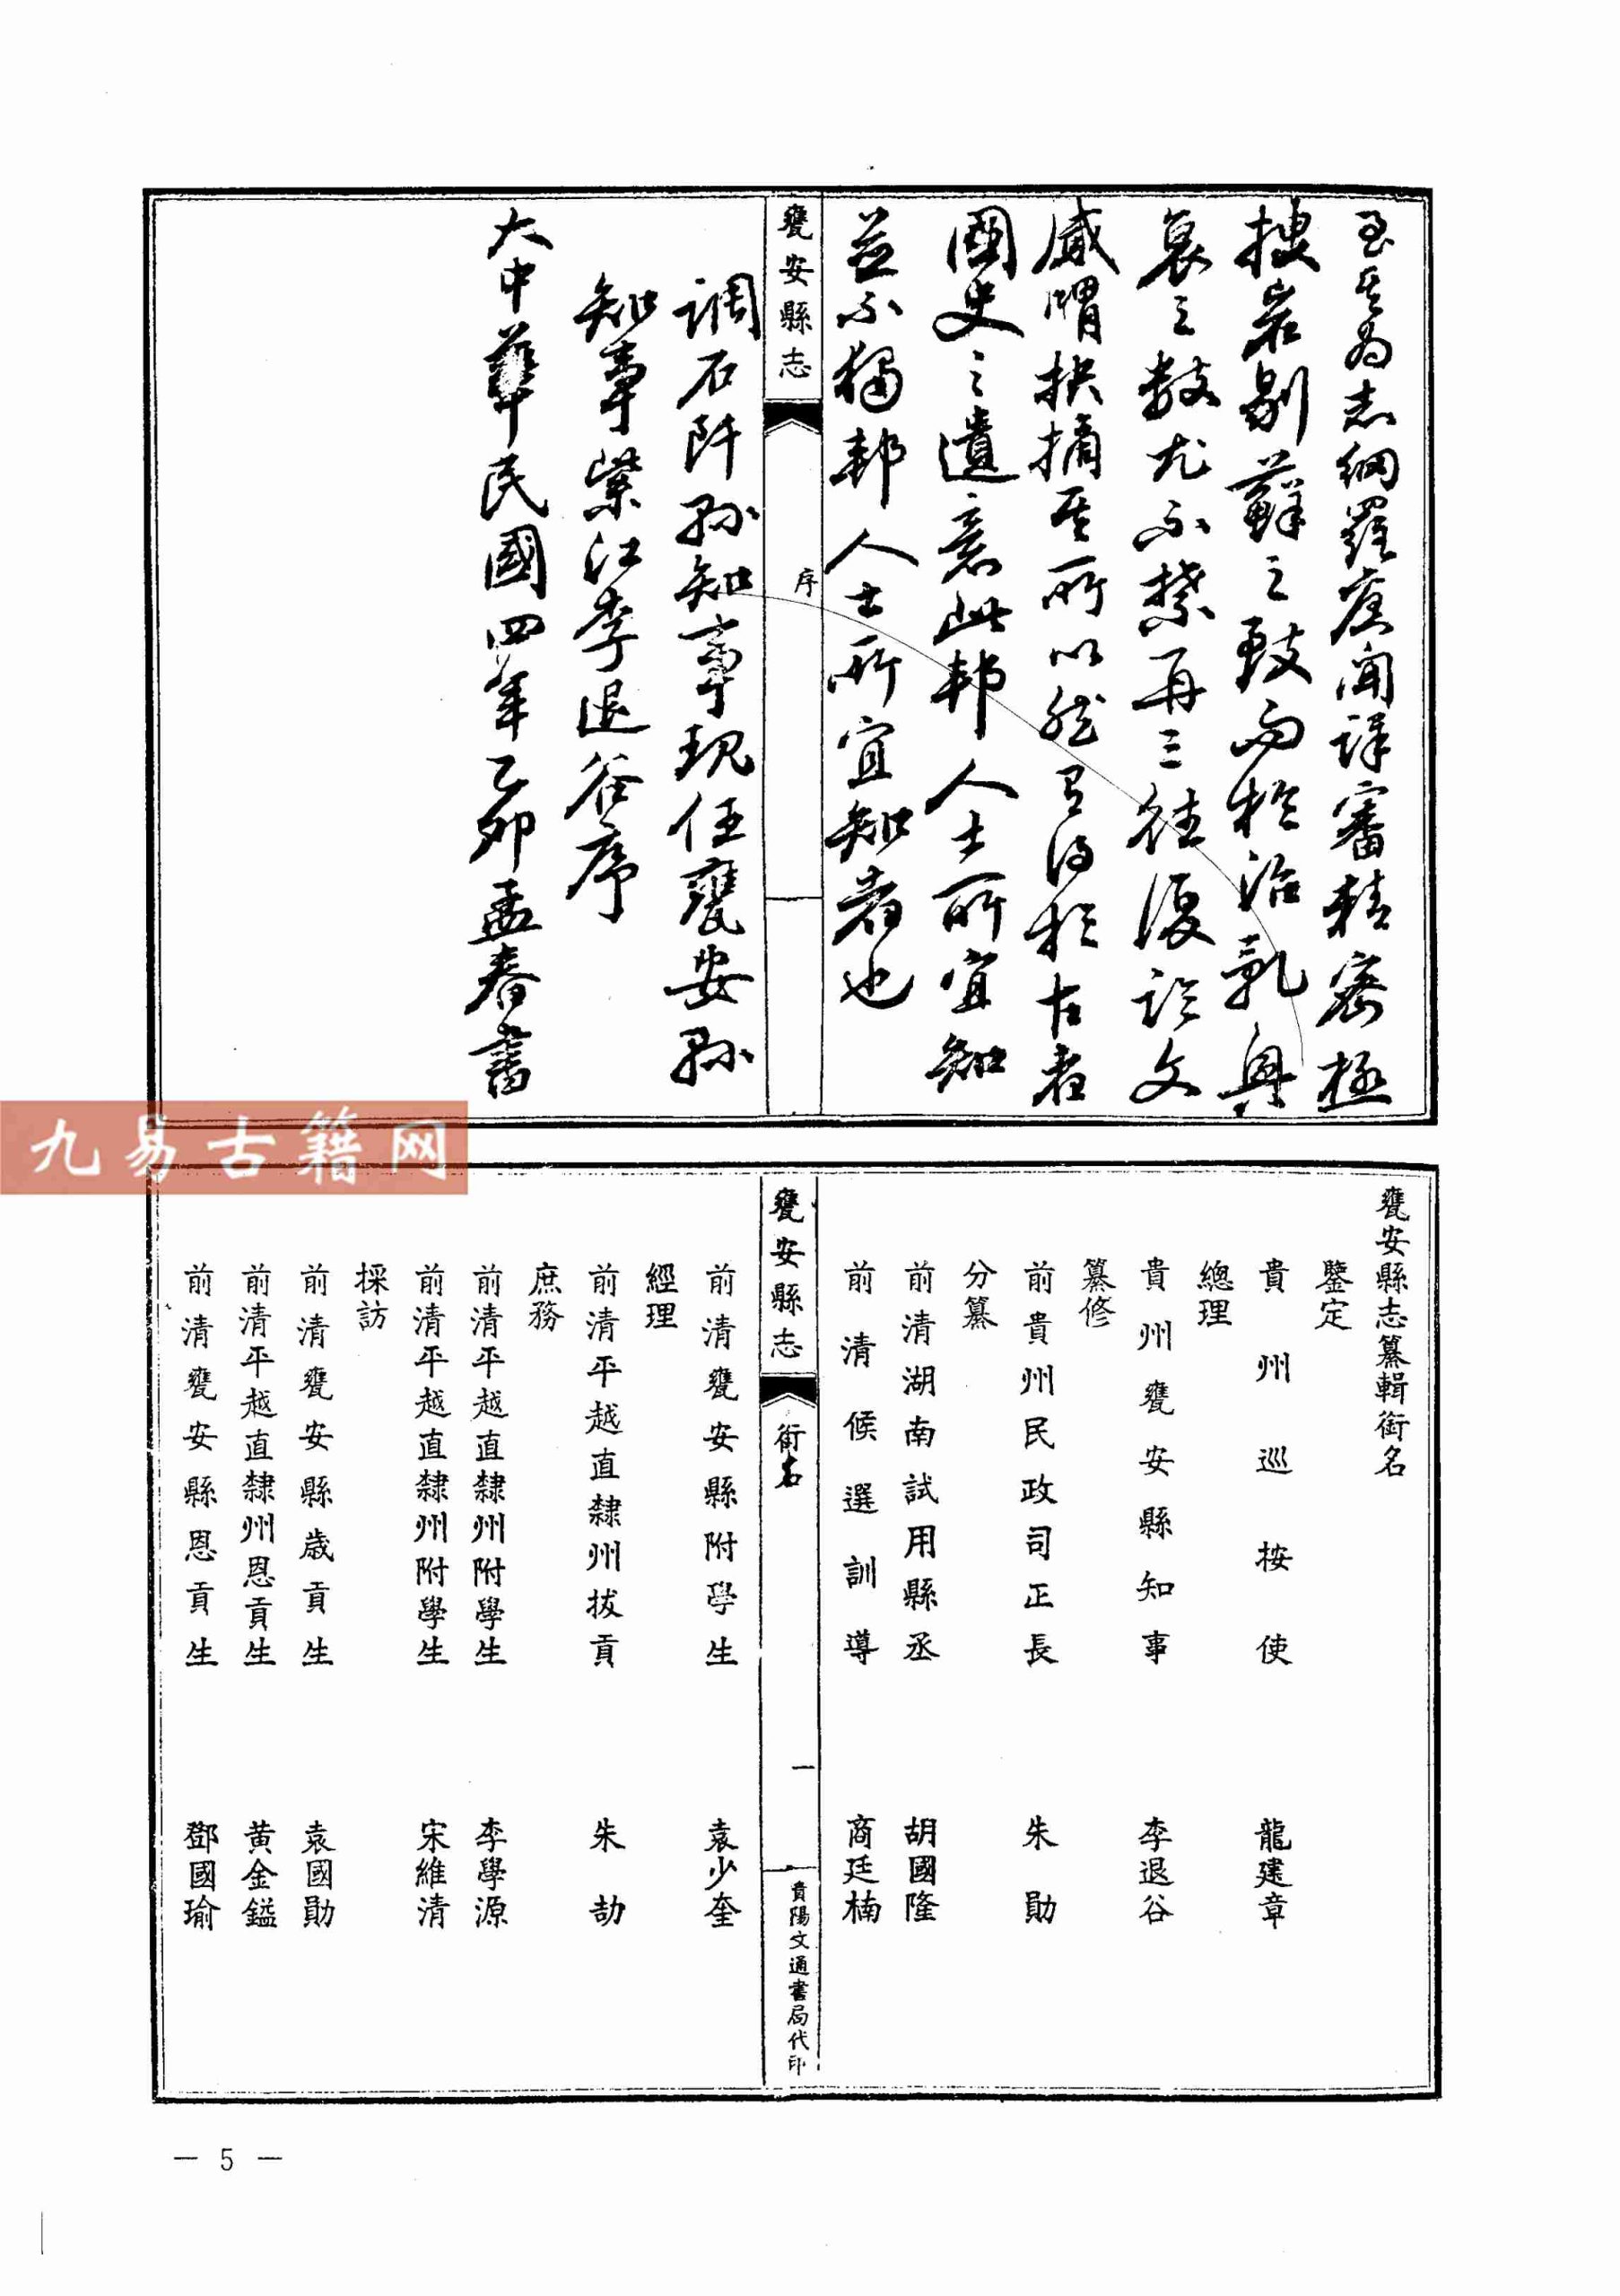 至其為志網羅舊聞詳審精密極
搜岩剔蘚之致而於治亂興
衰之數尤不禁再三往復論文
咸謂抉摘其所以然有得於古者
國史之遺意此邦人士所宜知
並不獨邦人士所宜知者也
甕安縣志
序
調石阡縣知事現任甕安縣
知事紫江李退谷序
大中華民國四年乙卯孟春書
九易古籍网
甕安縣志纂輯銜名
鑒定
貴州巡按使 龍建章
總理
貴州甕安縣知事 李退谷
纂修
前貴州民政司正長 朱勛
分纂
前清湖南試用縣丞 胡國隆
前清候選訓導 商廷楠
甕安縣志
銜名
一
貴陽文通書局代印
前清甕安縣附學生 袁少奎
經理
前清平越直隸州拔貢 朱劼
庶務
前清平越直隸州附學生 李學源
前清平越直隸州附學生 宋維清
採訪
前清甕安縣歲貢生 袁國勛
前清平越直隸州恩貢生 黄金鎰
前清甕安縣恩貢生 鄧國瑜
— 5 —